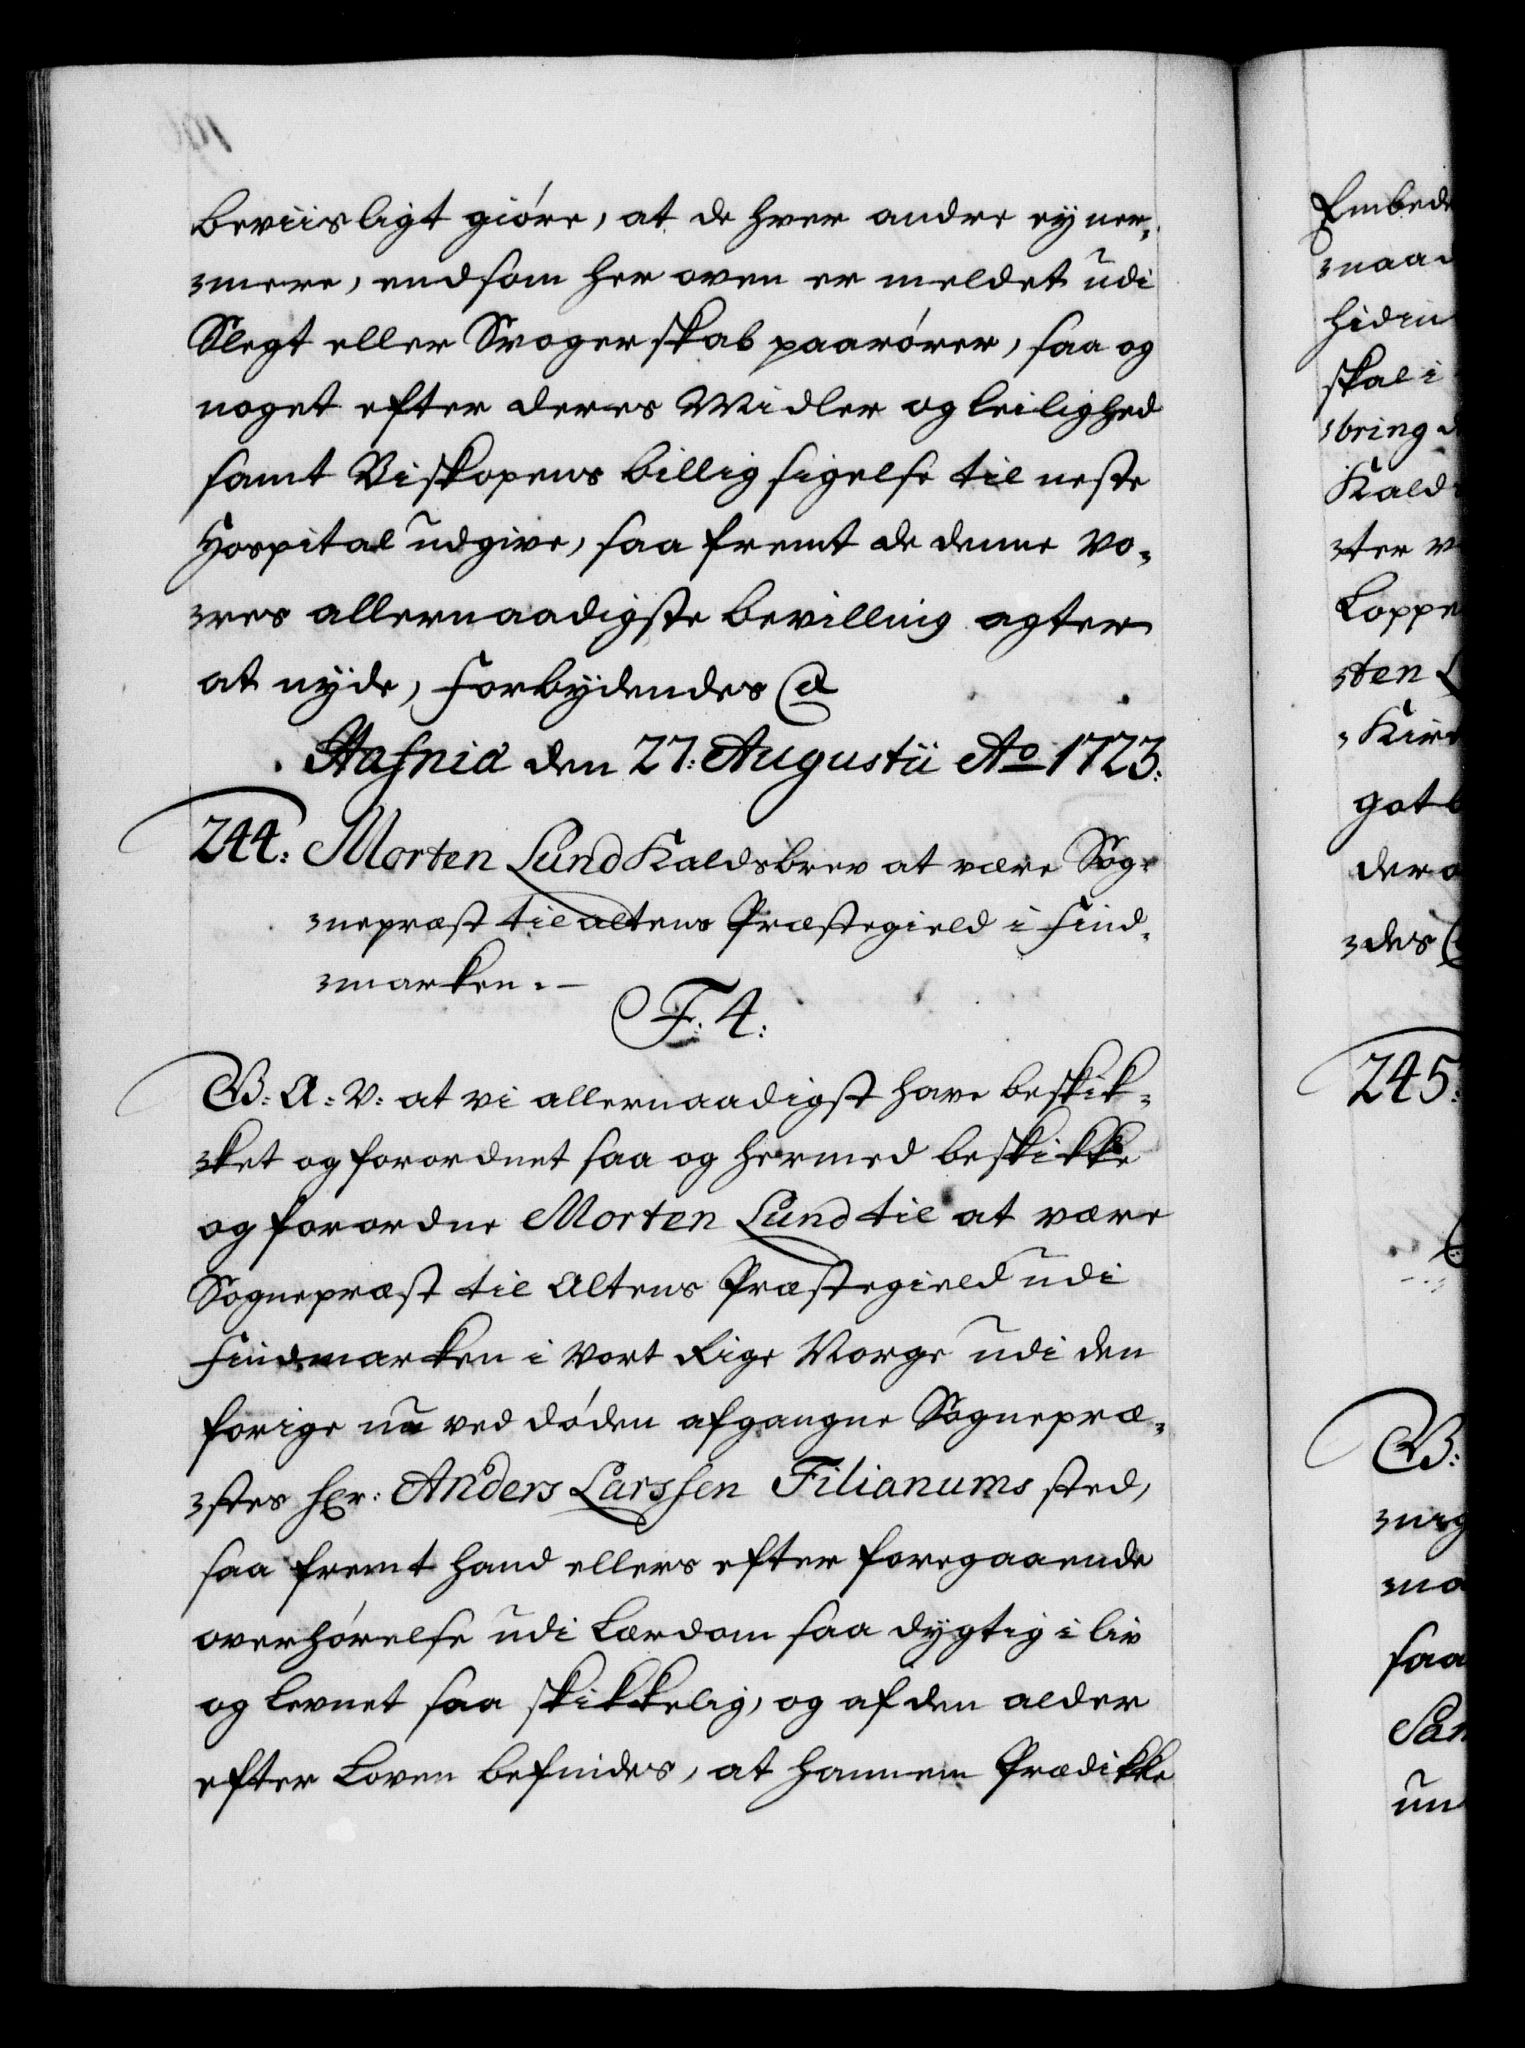 beviisligt gióre, at de hver andre ey ner-
mere, end som her oven er meldet udi
Slegt eller Svogerskab paarórer, saa og
noget efter deres Midler og leilighed
samt Biskopens billig sigelse til neste
Hospital udgive, saa fremt de denne vo-
res allernaadigste bevilling agter
at nyde, Forbydendes @
Hafnia den 27: Augustii Ao 1723:
244: Morten Lund Kaldsbrev at være Sog-
nepræst til Altens Præstegield i Find-
marken. -
F: 4:
G: A: V: at vi allernaadigst have beskik-
ket og forordnet saa og hermed beskikke
og forordne Morten Lund til at være
Sognepræst til Altens Præstegield udi
Findmarken i vort Rige Norge udi den
forige nu ved dóden afgangne Sognepræ-
stes Hr: Anders Larssen Filianums sted,
saa fremt hand ellers efter foregaaende
overhórelse udi Lærdom saa dygtig i liv
og levnet saa skikkelig, og af den alder
efter Loven befindes, at hannem Prædikke
Embede
naad
hidin
skal i
bring d
Kald
ter v
Loppe
sten L
Kir
got
der o
des @
245:
G:
mo
saa
San
un